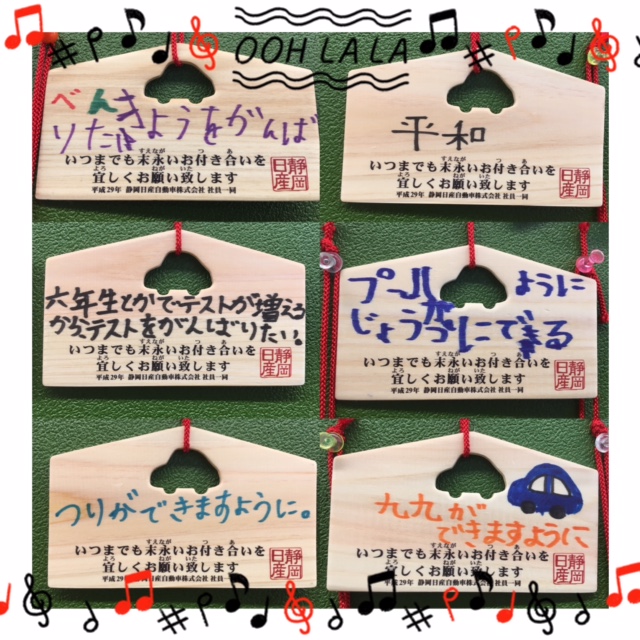 OOH LA LA
べんきようをがんば
りたい
いつまでも末永いお付き合いを
宜しくお願い致します
平成29年 静岡日産自動車株式会社 社員一同
静岡日産
平和
いつまでも末永いお付き合いを
宜しくお願い致します
平成29年 静岡日産自動車株式会社 社員一同
静岡日産
六年生とかでテストが増える
からテストをがんばりたい。
いつまでも末永いお付き合いを
宜しくお願い致します
平成29年 静岡日産自動車株式会社 社員一同
静岡日産
プールが
じょうずにできる
ように
いつまでも末永いお付き合いを
宜しくお願い致します
平成29年 静岡日産自動車株式会社 社員一同
静岡日産
つりができますように。
いつまでも末永いお付き合いを
宜しくお願い致します
平成29年 静岡日産自動車株式会社 社員一同
静岡日産
九九が
できますように
いつまでも末永いお付き合いを
宜しくお願い致します
平成29年 静岡日産自動車株式会社 社員一同
静岡日産